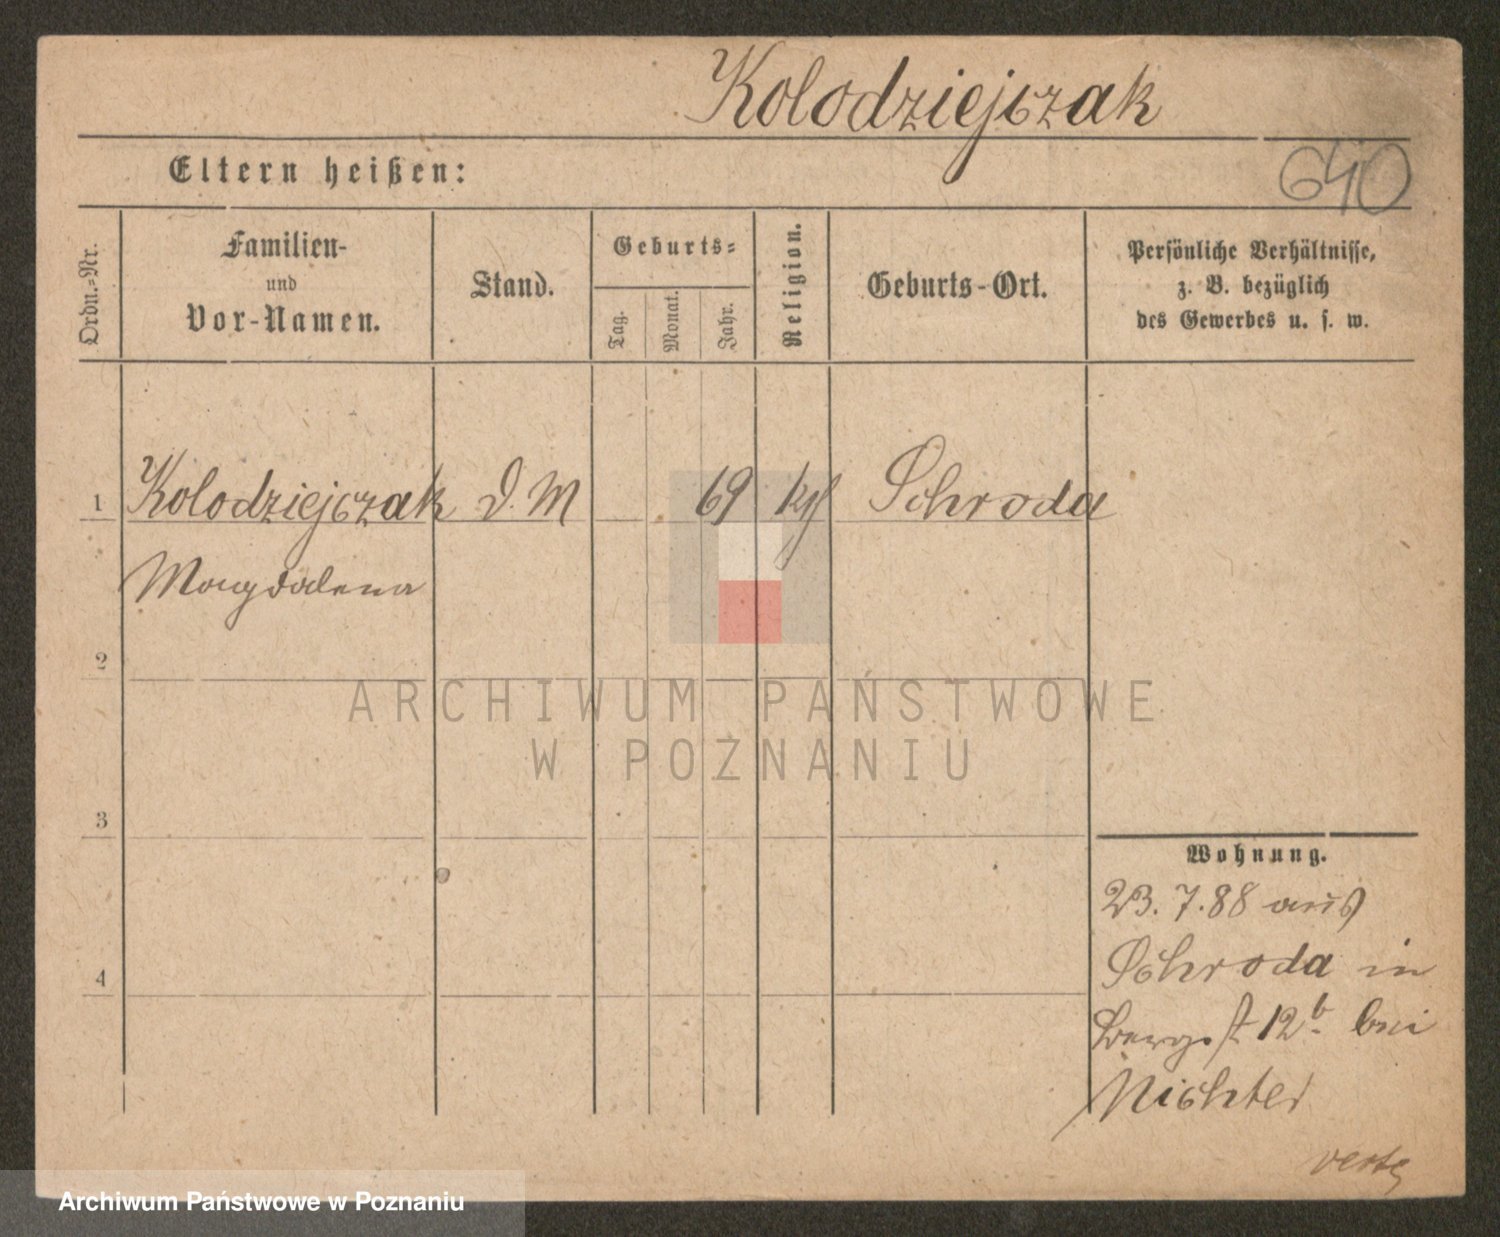 Kolodziejczak
Eltern heißen:
640
Ordn.-Nr.
Familien-
und
Vor-Namen.
Stand.
Geburts=
Tag.
Monat.
Jahr.
Religion.
Geburts-Ort.
Persönliche Verhältnisse,
z. B. bezüglich
des Gewerbes u. s. w.
1 Kolodziejczak D. M 69 kth Schroda
Magdalena
2
ARCHIWUM PAŃSTWOWE
W POZNANIU
3
Wohnung.
23. 7. 88 aus
Schroda in
4
Bergst 12b bei
verte
Archiwum Państwowe w Poznaniu